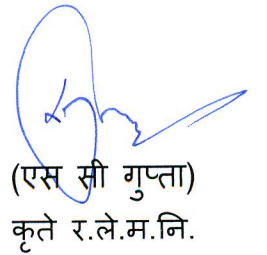 (एस सी गुप्ता)
कृते र.ले.म.नि.